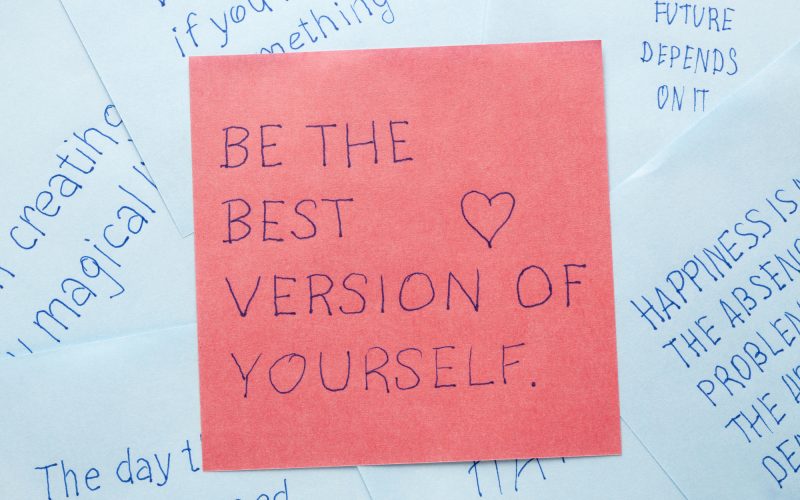 if you
something
FUTURE
DEPENDS
ON IT
creating
magical
BE THE
BEST
VERSION OF
YOURSELF.
HAPPINESS IS
THE
THE
The day